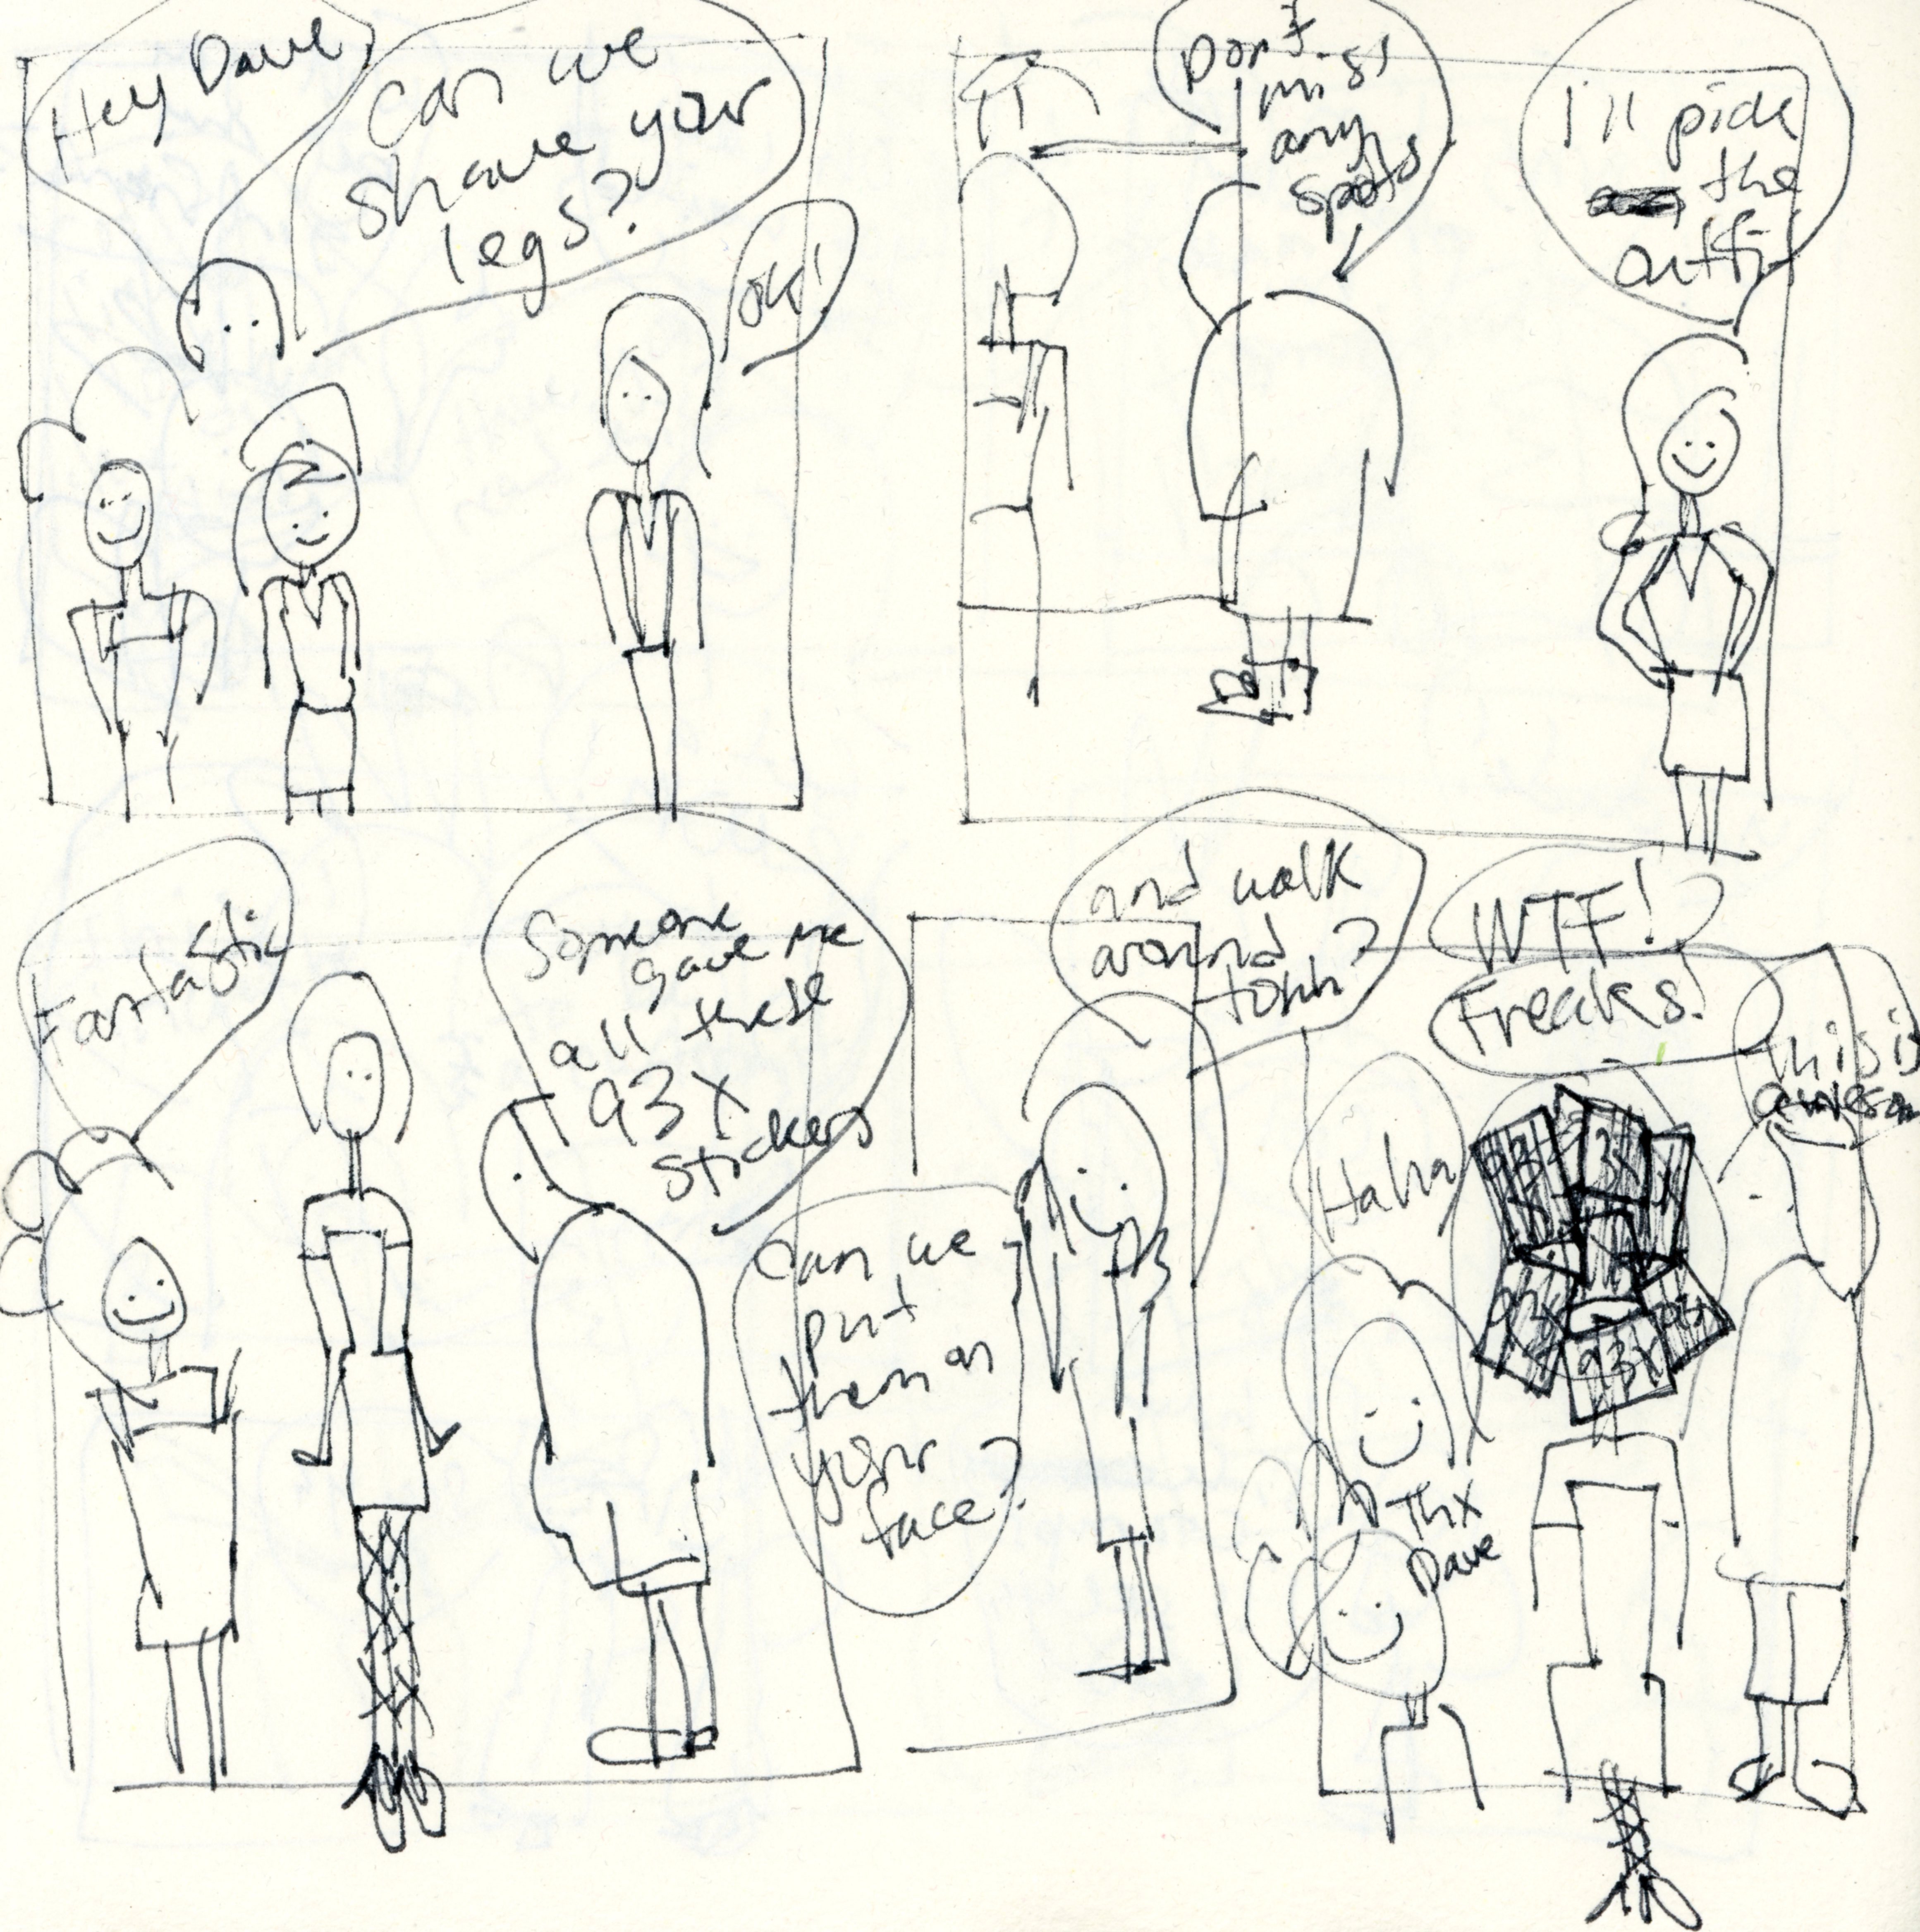 Hey Dave
Can we
shave your
legs?
OK!
Don't
miss
any
spots
I'll pick
the
outfit
Fantastic
Someone
gave me
all these
93X
stickers
Can we
put
them on
your
face?
and walk
around
town?
WTF!
Freaks!
This is
awesom
Haha
93X
93X
93X
93X
93X
Thx
Dave